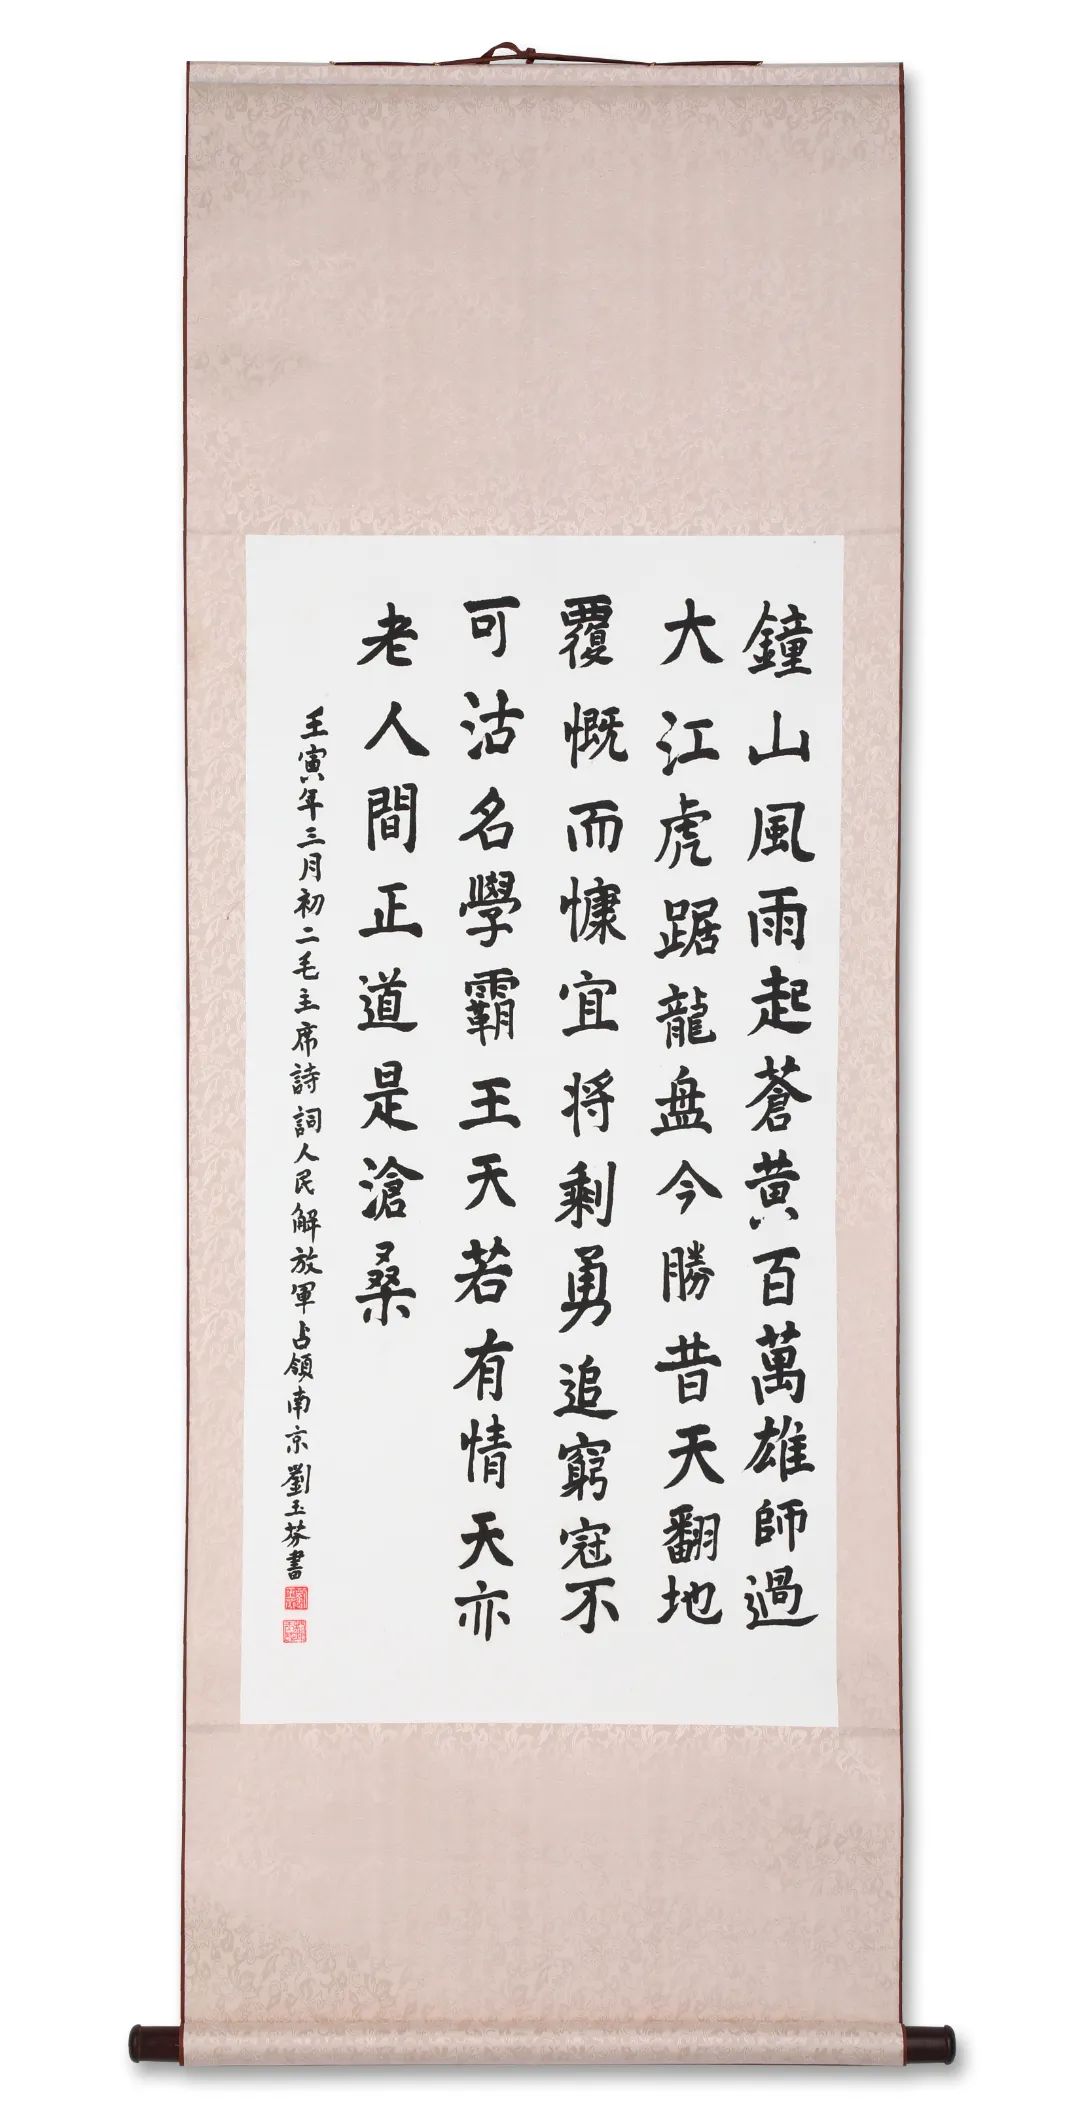 鐘山風雨起蒼黄百萬雄師過
大江虎踞龍盘今勝昔天翻地
覆慨而慷宜将剩勇追窮寇不
可沽名學霸王天若有情天亦
老人間正道是滄桑
壬寅年三月初二毛主席詩詞人民解放軍占領南京劉玉芬書